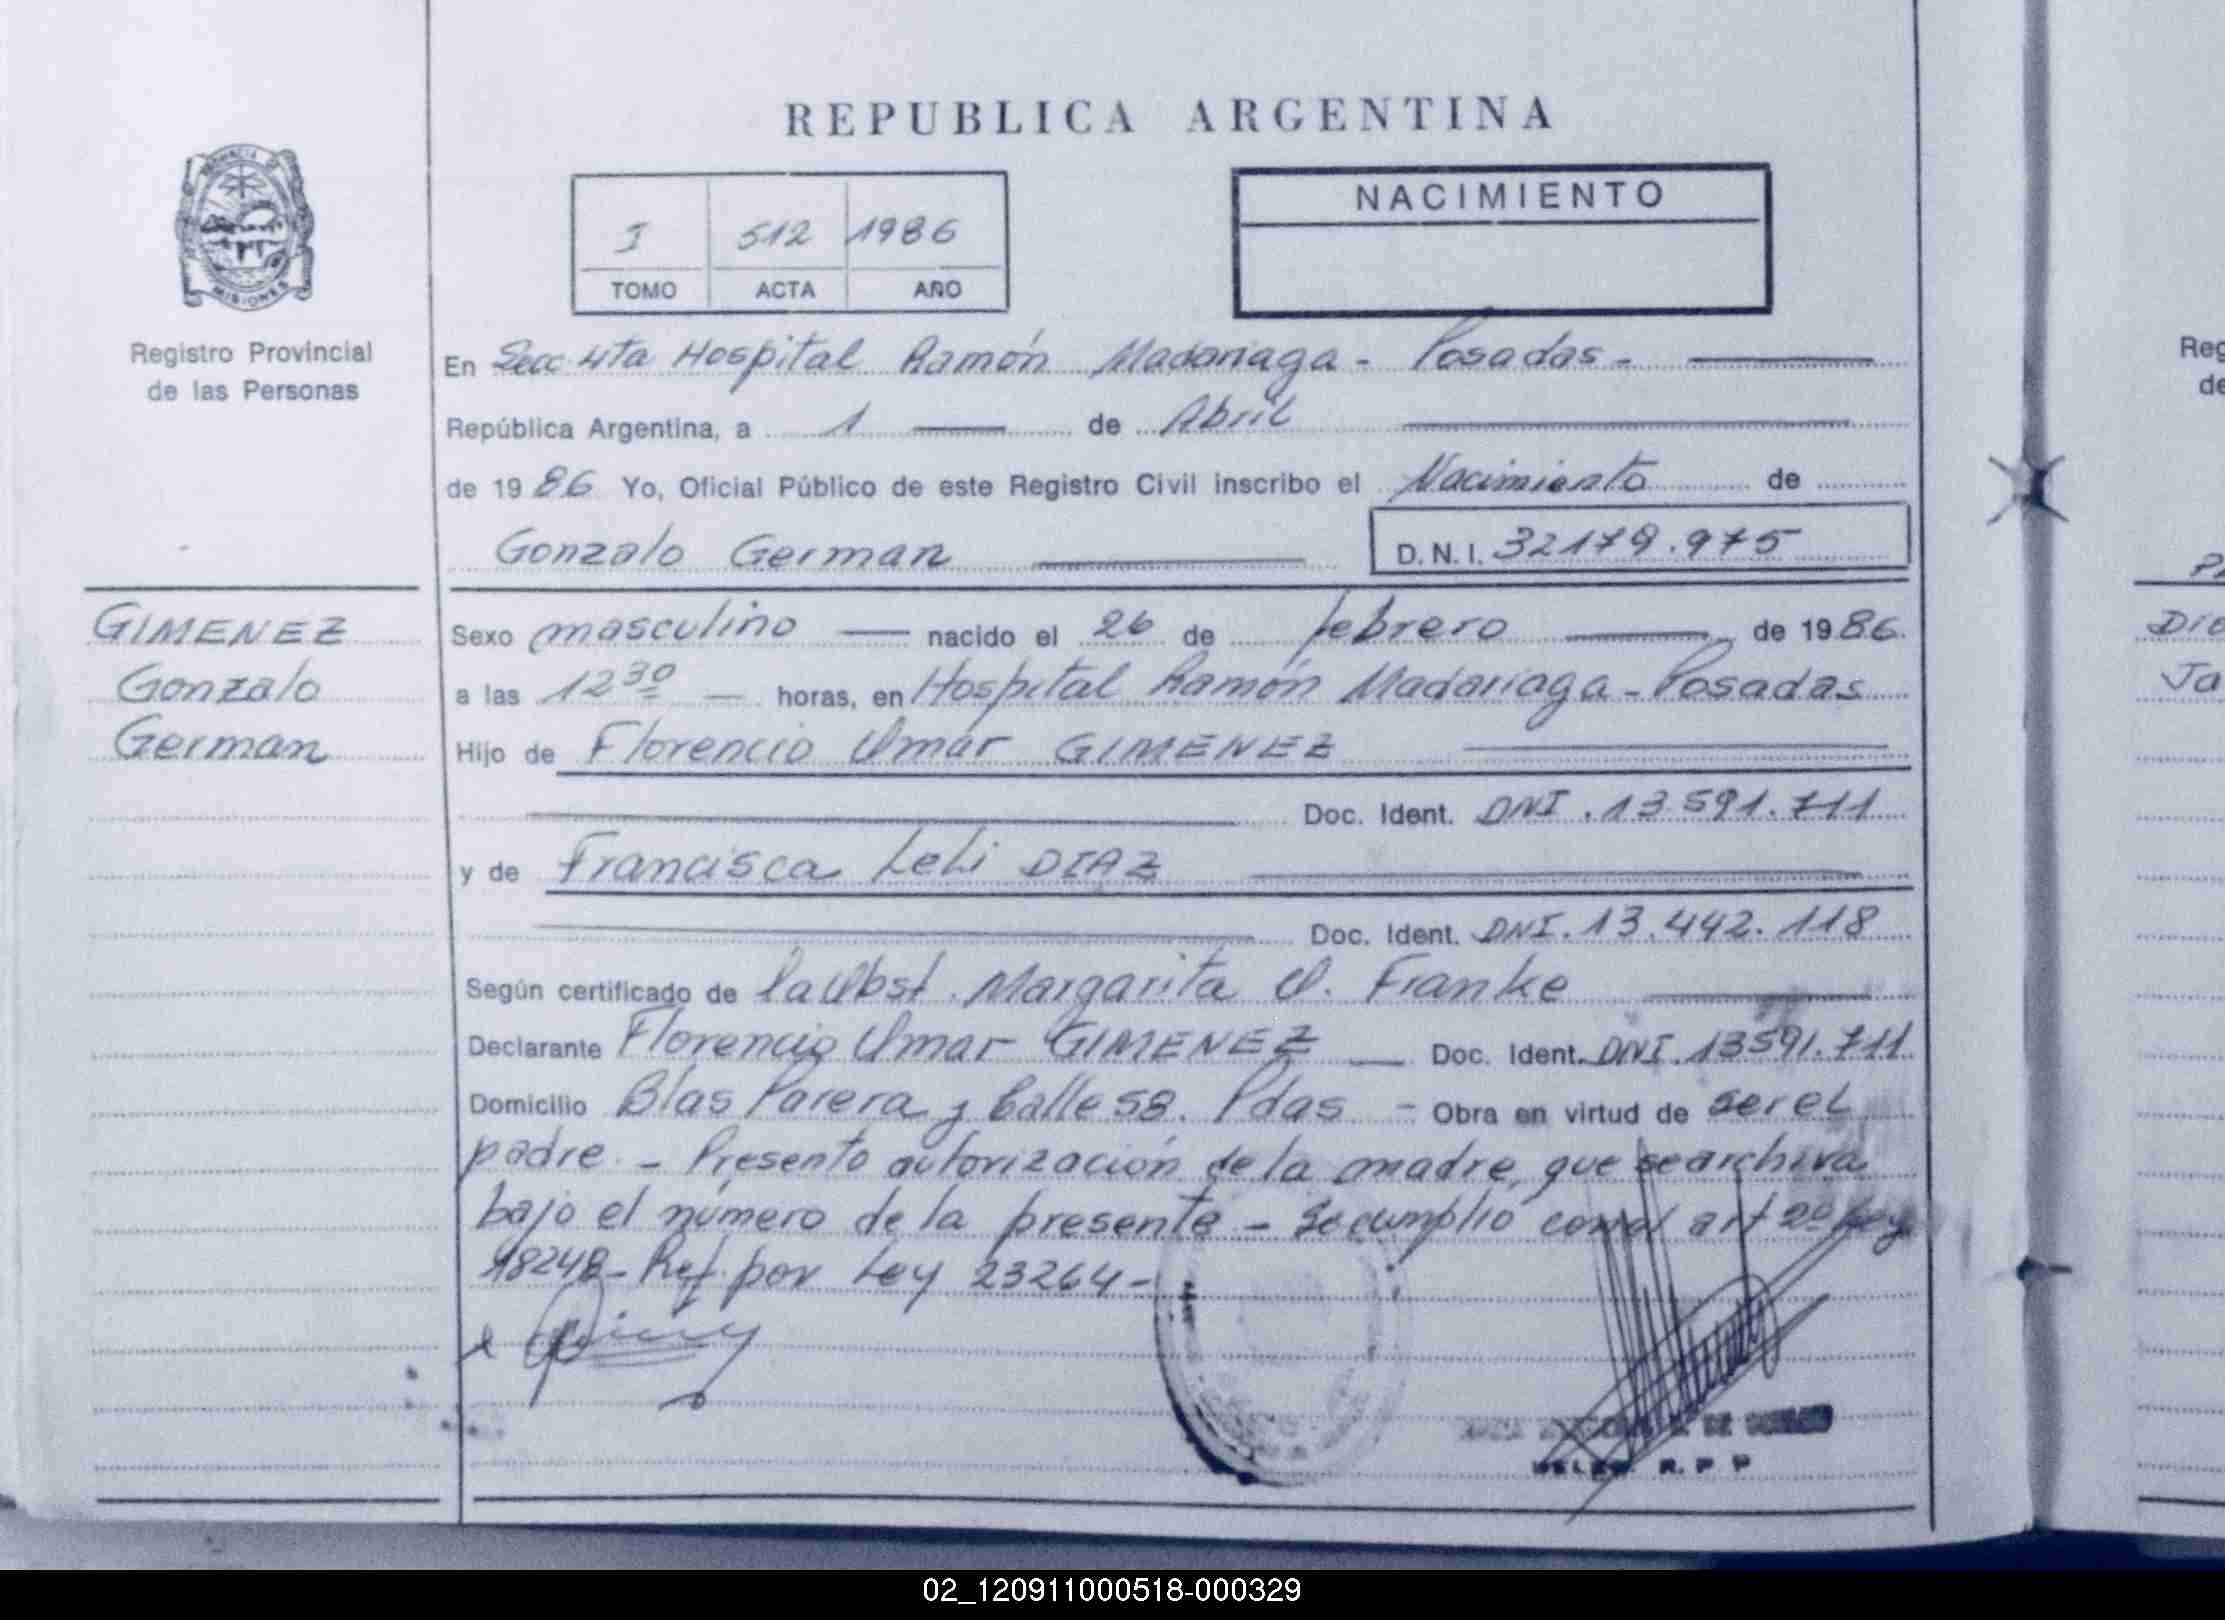 REPUBLICA ARGENTINA
PROVINCIA DE
MISIONES
Registro Provincial
de las Personas
I 512 1986
TOMO ACTA AÑO
NACIMIENTO
En Secc 4ta Hospital Ramón Madariaga - Posadas -
República Argentina, a 1 de Abril
de 1986 Yo, Oficial Público de este Registro Civil inscribo el Nacimiento de
Gonzalo German D.N.I. 32179.975
GIMENEZ
Gonzalo
German
Sexo masculino nacido el 26 de febrero de 1986.
a las 12 30 horas, en Hospital Ramón Madariaga - Posadas
Hijo de Florencio Omar GIMENEZ
Doc. Ident. DNI. 13.591.711
y de Francisca Leli DIAZ
Doc. Ident. DNI. 13.442.118
Según certificado de la Obst. Margarita O. Franke
Declarante Florencio Omar GIMENEZ Doc. Ident. DNI. 13591.711
Domicilio Blas Parera y Calle 58. Pdas - Obra en virtud de ser el
padre - Presento autorización de la madre, que se archiva
bajo el número de la presente - Se cumplió con el art 2º Ley
18248 - Ref. por Ley 23264 -
R.P.P
Reg
de
Die
Ja
02_120911000518-000329